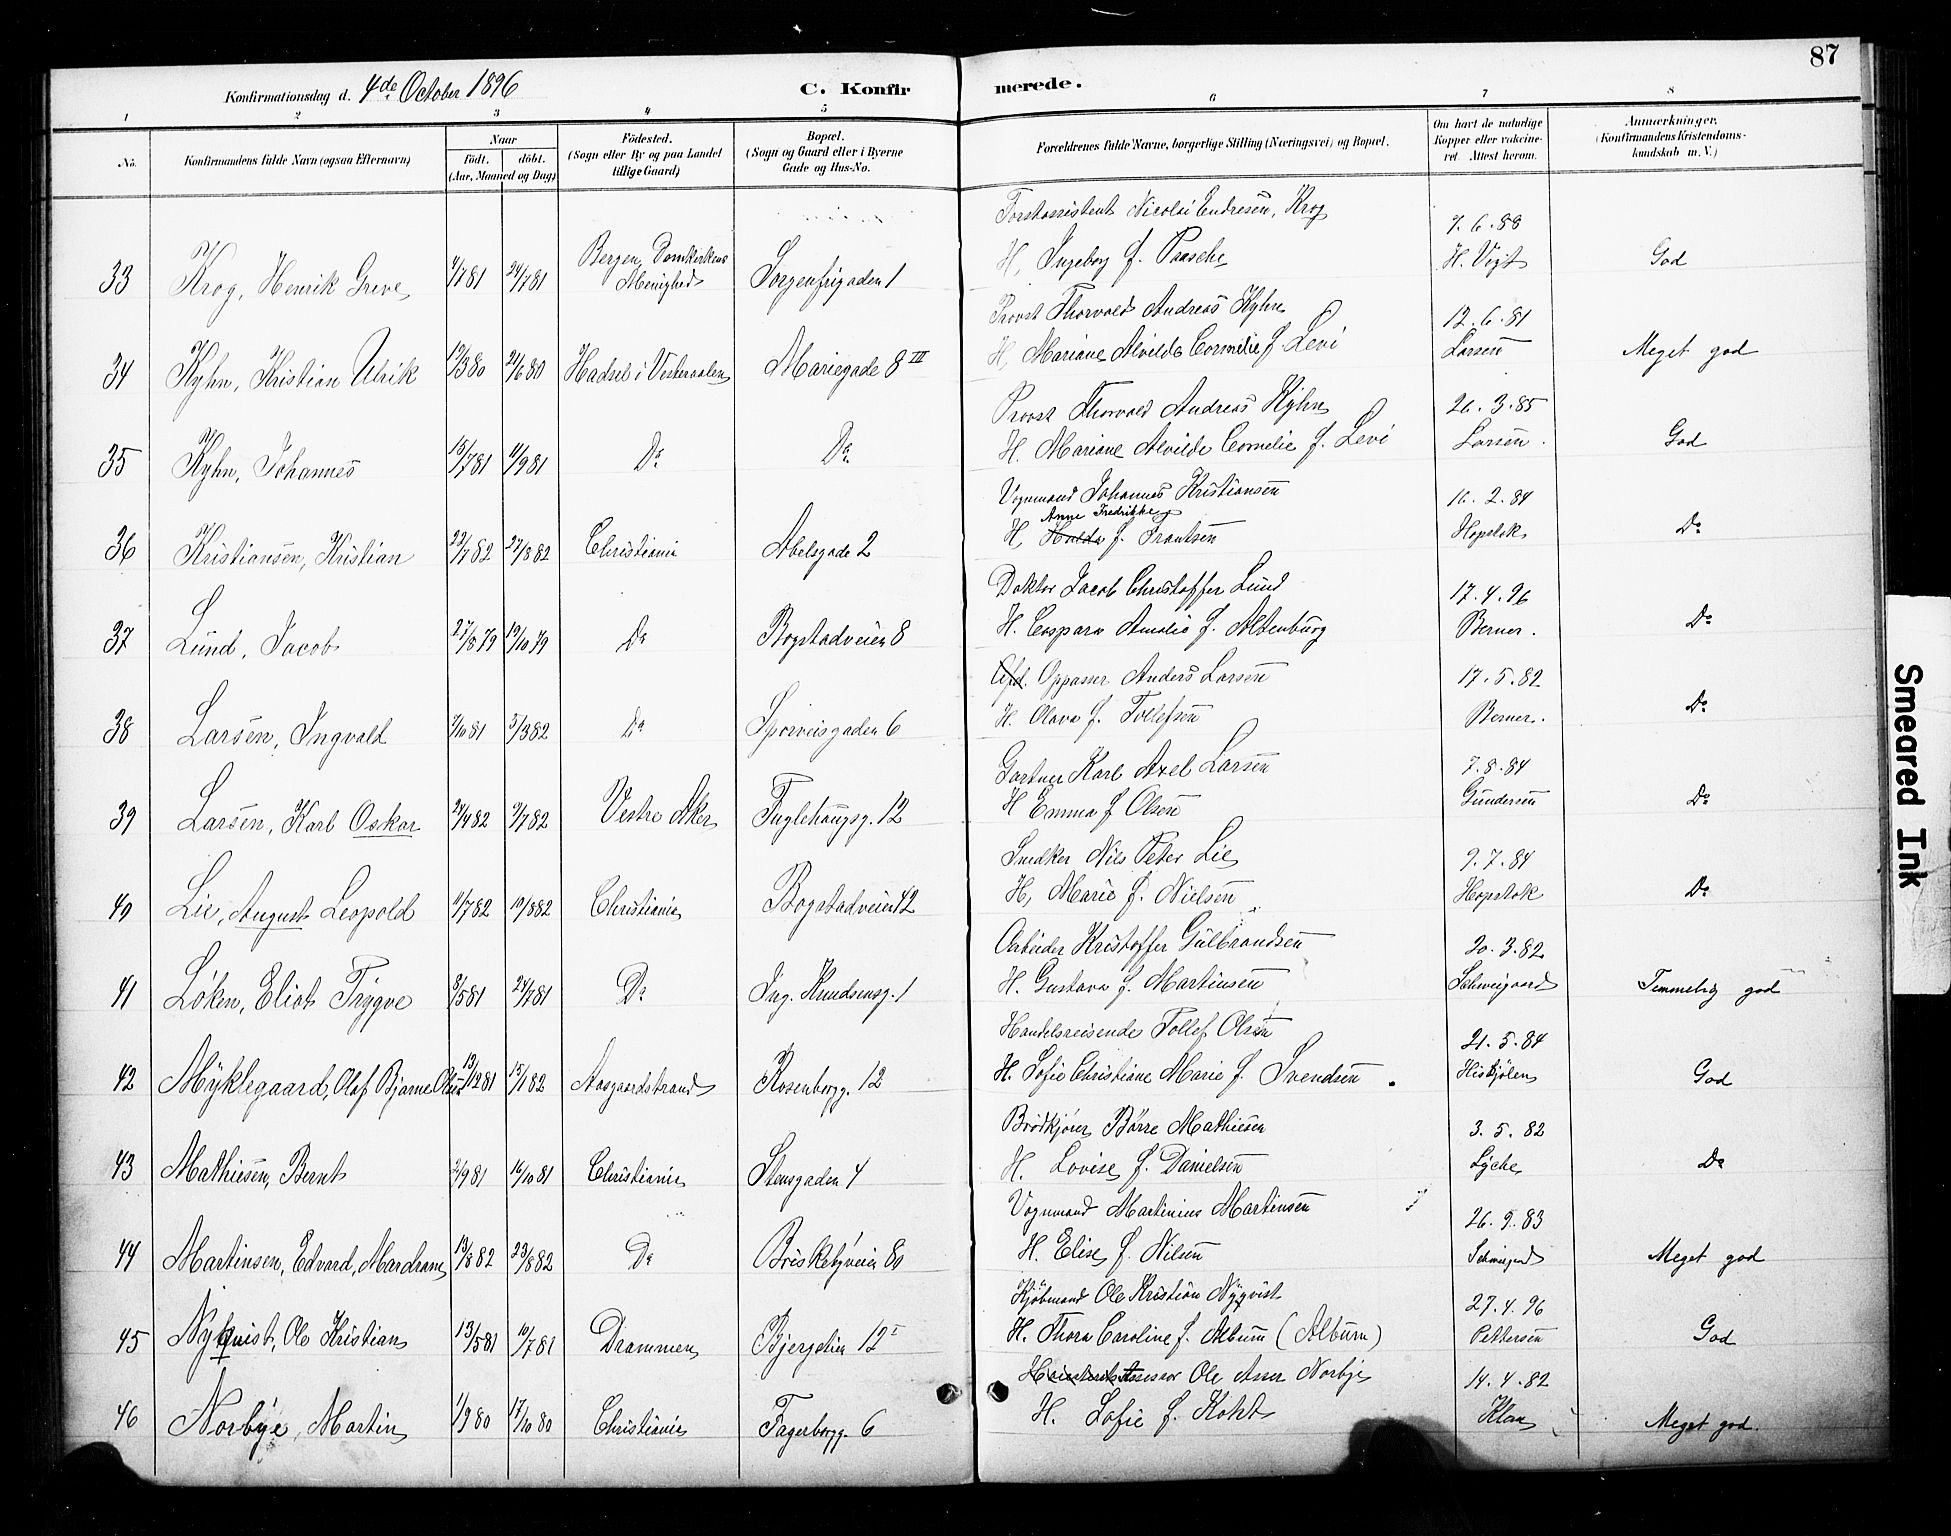 87
Konfirmationsdag d. 4de October 1896
C. Konfirmerede.
1 2 3 4 5 6 7 8
No.
Konfirmandens fulde Navn (ogsaa Efternavn)
Naar
födt. döbt.
(Aar, Maaned og Dag)
Födested.
(Sogn eller By og paa Landet
tillige Gaard)
Bopæl.
(Sogn og Gaard eller i Byerne
Gade og Hus-No.
Forældrenes fulde Navne, borgerlige Stilling (Næringsvei) og Bopæl.
Om havt de naturlige
Kopper eller vakcine-
ret. Attest herom.
Anmærkninger.
(Konfirmandens Kristendoms-
kundskab m. V.)
Forstassistent Nicolai Endresen Krog 7.6.88
33 Krog, Henrik Greve 4/7 81 24/7 81 Bergen, Domkirkens Menighed Sorgenfrigaden 1 H. Ingeborg f. Paasche H. Vogt God
Provst Thorvald Andreas Kyhn 12.6.81
34 Kyhn, Kristian Ulrik 19/3 80 21/6 80 Hadsel i Vesteraalen Mariegade 8 III H. Mariane Alvilde Cornelie f. Levi Larsen Meget god
Provst Thorvald Andreas Kyhn 26.3.85
35 Kyhn, Johannes 15/7 81 11/9 81 Do Do H. Mariane Alvilde Cornelie f. Levi Larsen. God
Vognmand Johannes Kristiansen 16.2.84
Anne Fredrikke
36 Kristiansen, Kristian 22/7 82 27/8 82 Christiania Abelsgade 2 H. Hulda f. Frantsen Hopstok Do
Doktor Jacob Christoffer Lund 17.4.96
37 Lund, Jacob 27/8 79 19/10 79 Do Bogstadveien 8 H. Caspara Amalie f. Altenburg Berner. Do
Afd. Oppasser Anders Larsen 17.5.82
38 Larsen, Ingvald 3/10 81 5/3 82 Do Sporveisgaden 6 H. Olava f. Tollefsen Berner. Do
Gartner Karl Axel Larsen 7.8.84
39 Larsen, Karl Oskar 24/4 82 9/7 82 Vestre Aker Fuglehaugsg. 12 H. Emma f. Olsen Gundersen Do
Snedker Nils Peter Lie 9.7.84
40 Lie, August Leopold 11/7 82 19/8 82 Christiania Bogstadveien 42 H. Marie f. Nielsen Hopstok Do
Arbeider Kristoffer Gulbrandsen 20.3.82
41 Løken, Eliot Trygve 8/5 81 24/7 81 Do Ing. Knudsensg. 1 H. Gustava f. Martinsen Schweigaard Temmelig god
Handelsreisende Tollef Olsen 21.5.84
42 Myklegaard, Olaf Bjarne Olsen 13/12 81 15/1 82 Aasgaardstrand Rosenborgg. 12 H. Sofie Christiane Marie f. Svendsen God
Brödkjører Børre Mathiesen 3.5.82
43 Mathiesen, Bernt 2/9 81 16/10 81 Christiania Stensgaden 4 H. Lovise f. Danielsen Lyche Do
Vognmand Martinius Martinsen 26.9.83
44 Martinsen, Edvard, Mardram 13/8 82 23/8 82 Do Briskebyveien 80 H. Elise f. Nilsen Meget god
Kjöbmand Ole Kristian Nyqvist 27.4.96
45 Nyquist, Ole Kristian 13/5 81 10/7 81 Drammen Bjergstien 12 I H. Thora Caroline f. Album (Album) Pettersen God
Assessor Ole Aser Norbye 14.4.82
46 Norbye, Martin 1/9 80 17/10 80 Christiania Fagerborgg. 6 H. Sofie f. Koht Klan Meget god.
Smeared Ink